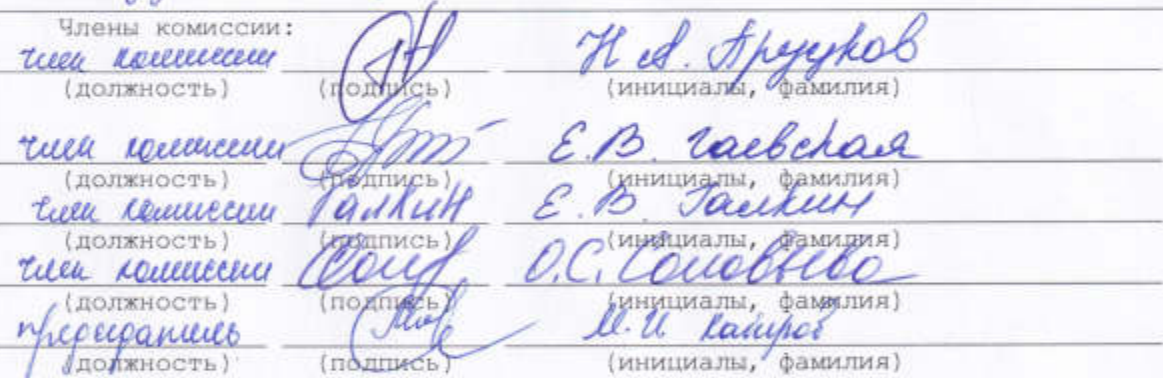 Члены комиссии:
член комиссии Н А.
(должность) (подпись) (инициалы, фамилия)
член комиссии Е.В. Гаевская
(должность) (подпись) (инициалы, фамилия)
член комиссии Галкин Е.В. Галкин
(должность) (подпись) (инициалы, фамилия)
член комиссии О.С. Соловьева
(должность) (подпись) (инициалы, фамилия)
председатель М.И
(должность) (подпись) (инициалы, фамилия)